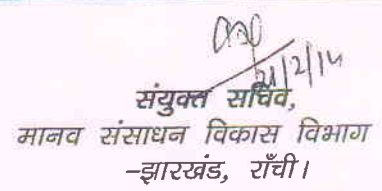 21/2/14
संयुक्त सचिव,
मानव संसाधन विकास विभाग
-झारखंड, राँची।